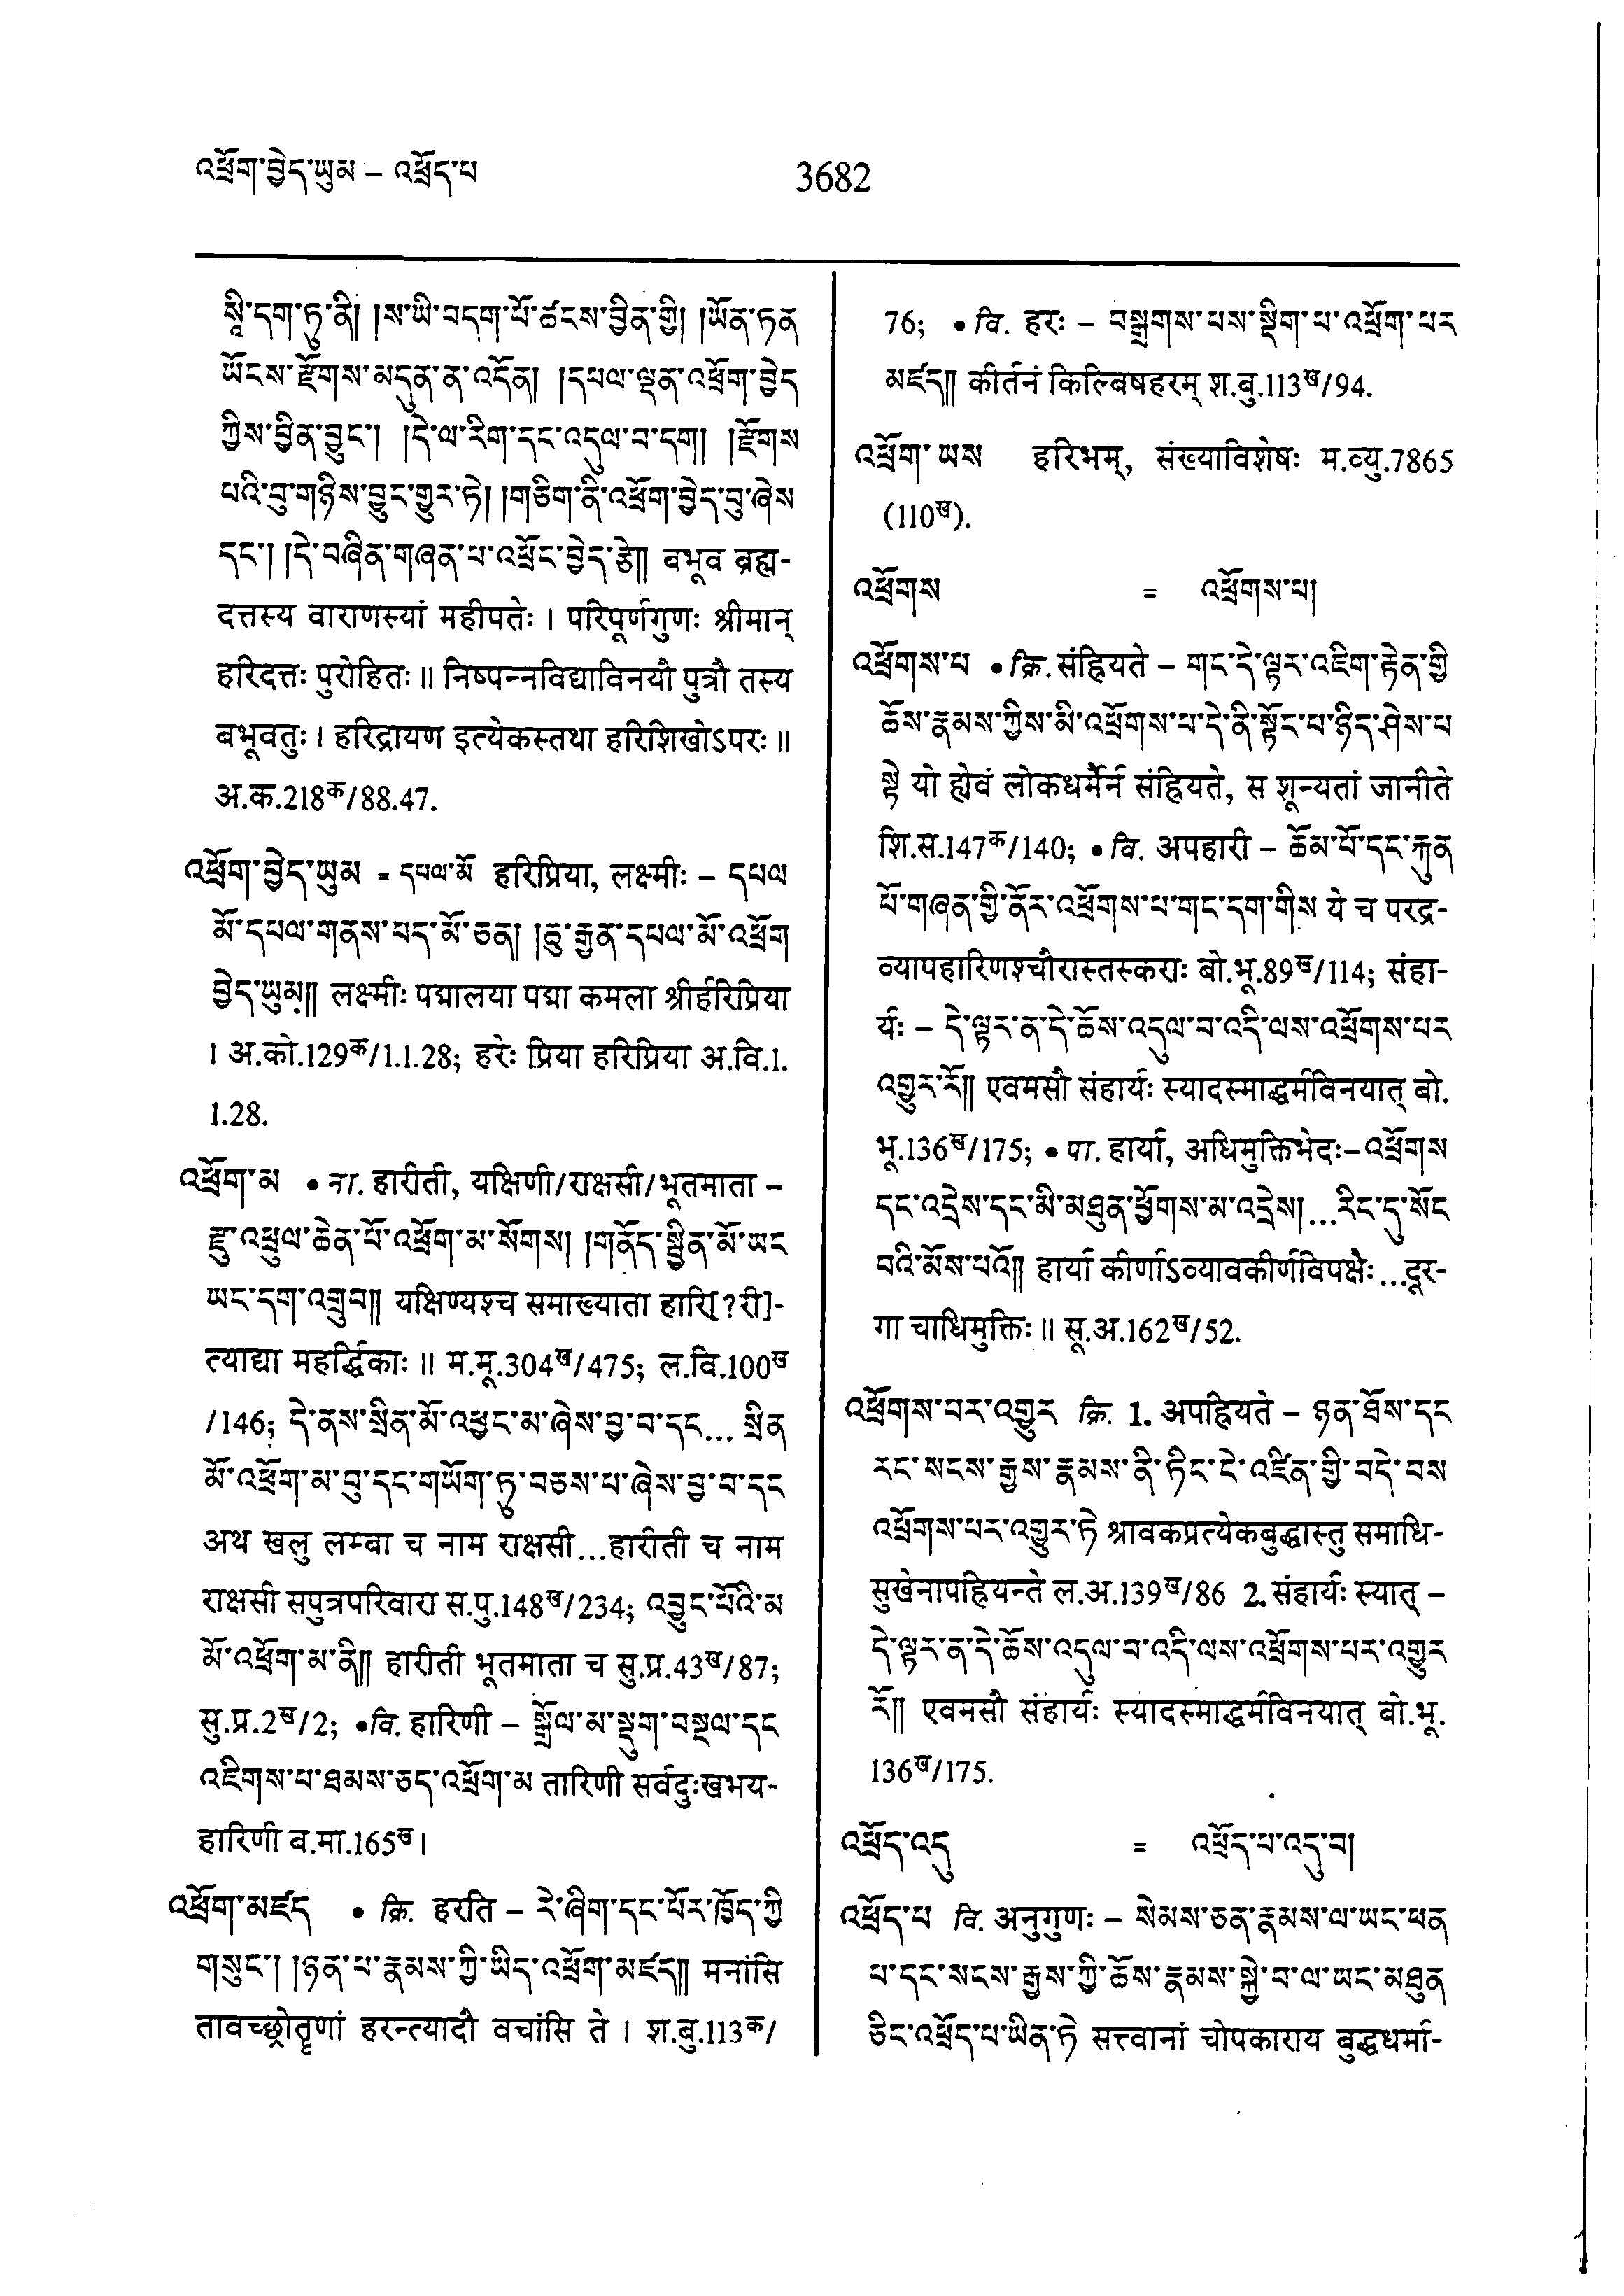 འཕྲོག་བྱེད་ཡུམ – འཕྲོད་པ
3682
སཱི་དག་ཏུ་ནི། །ས་ཡི་བདག་པོ་ཚངས་བྱིན་གྱི། །ཡོན་ཏན
ཡོངས་རྫོགས་མདུན་ན་འདོན། །དཔལ་ལྡན་འཕྲོག་བྱེད
ཀྱིས་བྱིན་བྱུང་། །དེ་ལ་རིག་དང་འདུལ་བ་དག། །རྫོགས
པའི་བུ་གཉིས་བྱུང་གྱུར་ཏེ། །གཅིག་ནི་འཕྲོག་བྱེད་བུ་ཞེས
དང་། །དེ་བཞིན་གཞན་པ་འཕྲོང་བྱེད་རྩེ༎ बभूव ब्रह्म-
दत्तस्य वाराणस्यां महीपतेः । परिपूर्णगुणः श्रीमान्
हरिदत्तः पुरोहितः ॥ निष्पन्नविद्याविनयौ पुत्रौ तस्य
बभूवतुः । हरिद्रायण इत्येकस्तथा हरिशिखोऽपरः ॥
अ.क.218क/88.47.
འཕྲོག་བྱེད་ཡུམ = དཔལ་མོ हरिप्रिया, लक्ष्मीः – དཔལ
མོ་དཔལ་གནས་པད་མོ་ཅན། །ཆུ་རྒྱན་དཔལ་མོ་འཕྲོག
བྱེད་ཡུམ༎ लक्ष्मीः पद्मालया पद्मा कमला श्रीर्हरिप्रिया
। अ.को.129क/1.1.28; हरेः प्रिया हरिप्रिया अ.वि.1.
1.28.
འཕྲོག་མ • ना. हारीती, यक्षिणी/राक्षसी/भूतमाता –
རྫུ་འཕྲུལ་ཆེན་པོ་འཕྲོག་མ་སོགས། །གནོད་སྦྱིན་མོ་ཡང
ཡང་དག་འགྲུབ༎ यक्षिण्यश्च समाख्याता हारि[?री]-
त्याद्या महर्द्धिकाः ॥ म.मू.304ख/475; ल.वि.100ख
/146; དེ་ནས་སྲིན་མོ་འཕྱང་མ་ཞེས་བྱ་བ་དང... སྲིན
མོ་འཕྲོག་མ་བུ་དང་གཡོག་ཏུ་བཅས་པ་ཞེས་བྱ་བ་དང
अथ खलु लम्बा च नाम राक्षसी...हारीती च नाम
राक्षसी सपुत्रपरिवारा स.पु.148ख/234; འབྱུང་པོའི་མ
མོ་འཕྲོག་མ་ནི༎ हारीती भूतमाता च सु.प्र.43ख/87;
सु.प्र.2ख/2; •वि. हारिणी – སྒྲོལ་མ་སྡུག་བསྔལ་དང
འཇིགས་པ་ཐམས་ཅད་འཕྲོག་མ तारिणी सर्वदुःखभय-
हारिणी ब.मा.165ख।
འཕྲོག་མཛད • क्रि. हरति – རེ་ཞིག་དང་པོར་ཁྱོད་ཀྱི
གསུང་། །ཉན་པ་རྣམས་ཀྱི་ཡིད་འཕྲོག་མཛད༎ मनांसि
तावच्छ्रोतॄणां हरन्त्यादौ वचांसि ते । श.बु.113क/
76; • वि. हरः – བསྒྲགས་པས་སྡིག་པ་འཕྲོག་པར
མཛད༎ कीर्तनं किल्बिषहरम् श.बु.113ख/94.
འཕྲོག་ཡས हरिभम्, संख्याविशेषः म.व्यु.7865
(110ख).
འཕྲོགས = འཕྲོགས་པ།
འཕྲོགས་པ • क्रि. संह्रियते – གང་དེ་ལྟར་འཇིག་རྟེན་གྱི
ཆོས་རྣམས་ཀྱིས་མི་འཕྲོགས་པ་དེ་ནི་སྟོང་པ་ཉིད་ཤེས་པ
སྟེ यो ह्येवं लोकधर्मैर्न संह्रियते, स शून्यतां जानीते
शि.स.147क/140; • वि. अपहारी – ཆོམ་པོ་དང་རྐུན
པོ་གཞན་གྱི་ནོར་འཕྲོགས་པ་གང་དག་གིས ये च परद्र-
व्यापहारिणश्चौरास्तस्कराः बो.भू.89ख/114; संहा-
र्यः – དེ་ལྟར་ན་དེ་ཆོས་འདུལ་བ་འདི་ལས་འཕྲོགས་པར
འགྱུར་རོ༎ एवमसौ संहार्यः स्यादस्माद्धर्मविनयात् बो.
भू.136ख/175; • पा. हार्या, अधिमुक्तिभेदः–འཕྲོགས
དང་འདྲེས་དང་མི་མཐུན་ཕྱོགས་མ་འདྲེས།...རིང་དུ་སོང
བའི་མོས་པའོ༎ हार्या कीर्णाऽव्यावकीर्णविपक्षैः...दूर-
गा चाधिमुक्तिः ॥ सू.अ.162ख/52.
འཕྲོགས་པར་འགྱུར क्रि. 1. अपह्रियते – ཉན་ཐོས་དང
རང་སངས་རྒྱས་རྣམས་ནི་ཏིང་ངེ་འཛིན་གྱི་བདེ་བས
འཕྲོགས་པར་འགྱུར་ཏེ श्रावकप्रत्येकबुद्धास्तु समाधि-
सुखेनापह्रियन्ते ल.अ.139ख/86 2. संहार्यः स्यात् –
དེ་ལྟར་ན་དེ་ཆོས་འདུལ་བ་འདི་ལས་འཕྲོགས་པར་འགྱུར
རོ༎ एवमसौ संहार्यः स्यादस्माद्धर्मविनयात् बो.भू.
136ख/175.
འཕྲོད་འདུ = འཕྲོད་པ་འདུ་བ།
འཕྲོད་པ वि. अनुगुणः – སེམས་ཅན་རྣམས་ལ་ཡང་ཕན
པ་དང་སངས་རྒྱས་ཀྱི་ཆོས་རྣམས་སྐྱེ་བ་ལ་ཡང་མཐུན
ཅིང་འཕྲོད་པ་ཡིན་ཏེ सत्त्वानां चोपकाराय बुद्धधर्मा-